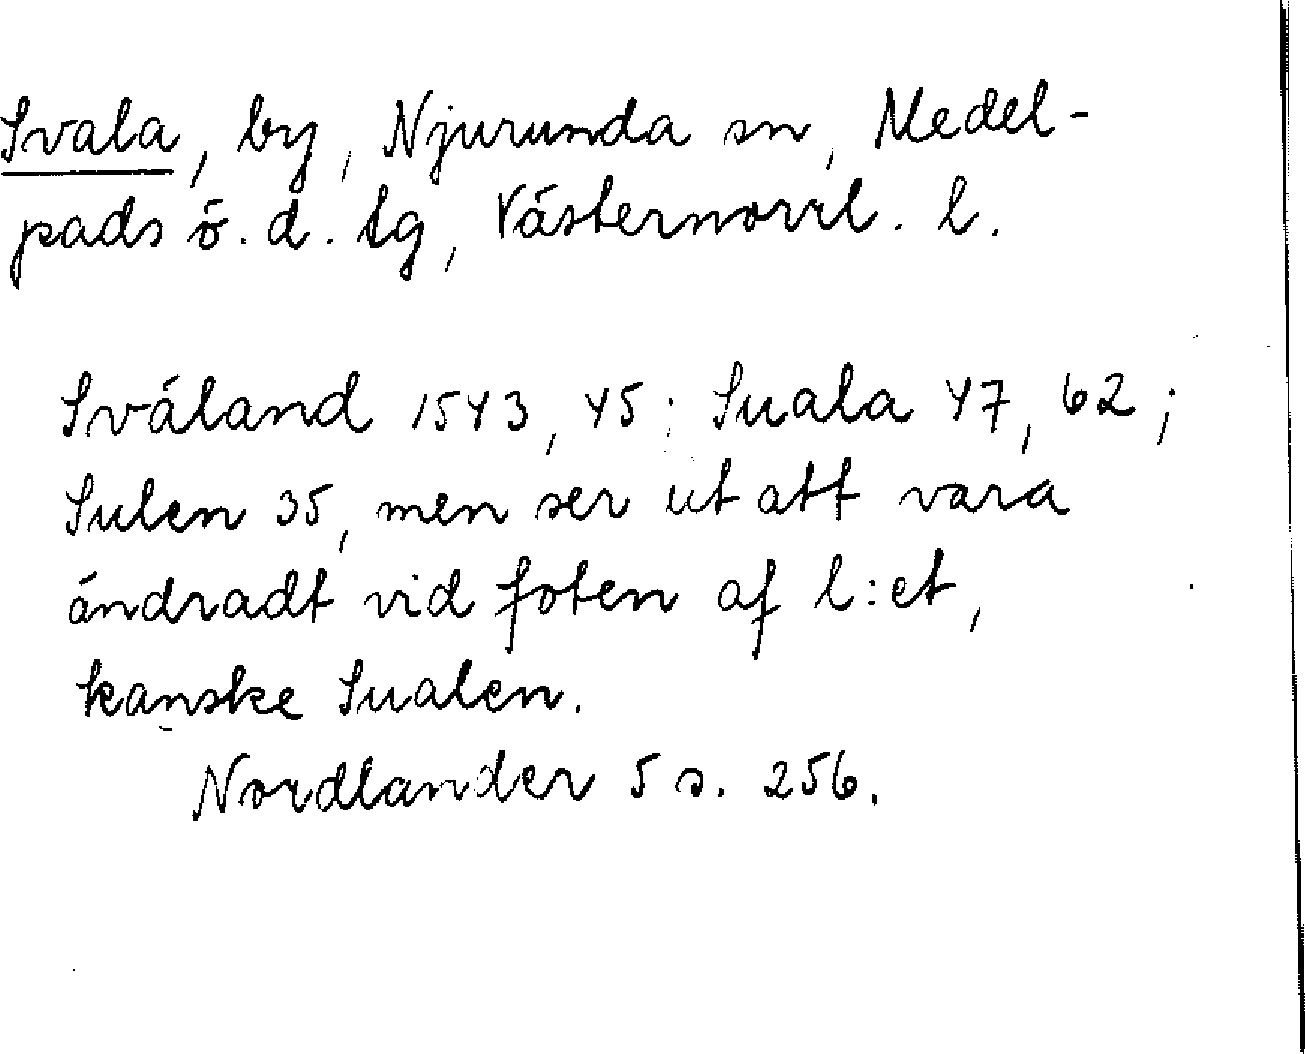 Svala, by, Njurunda sn, Medel-
pads ö. d. tg, Västernorrl. l.
Svåland 1543, 45; Suala 47, 62;
Sulen 35, men ser ut att vara
ändradt vid foten af l:et,
kanske Sualen.
Nordlander 5 s. 256.